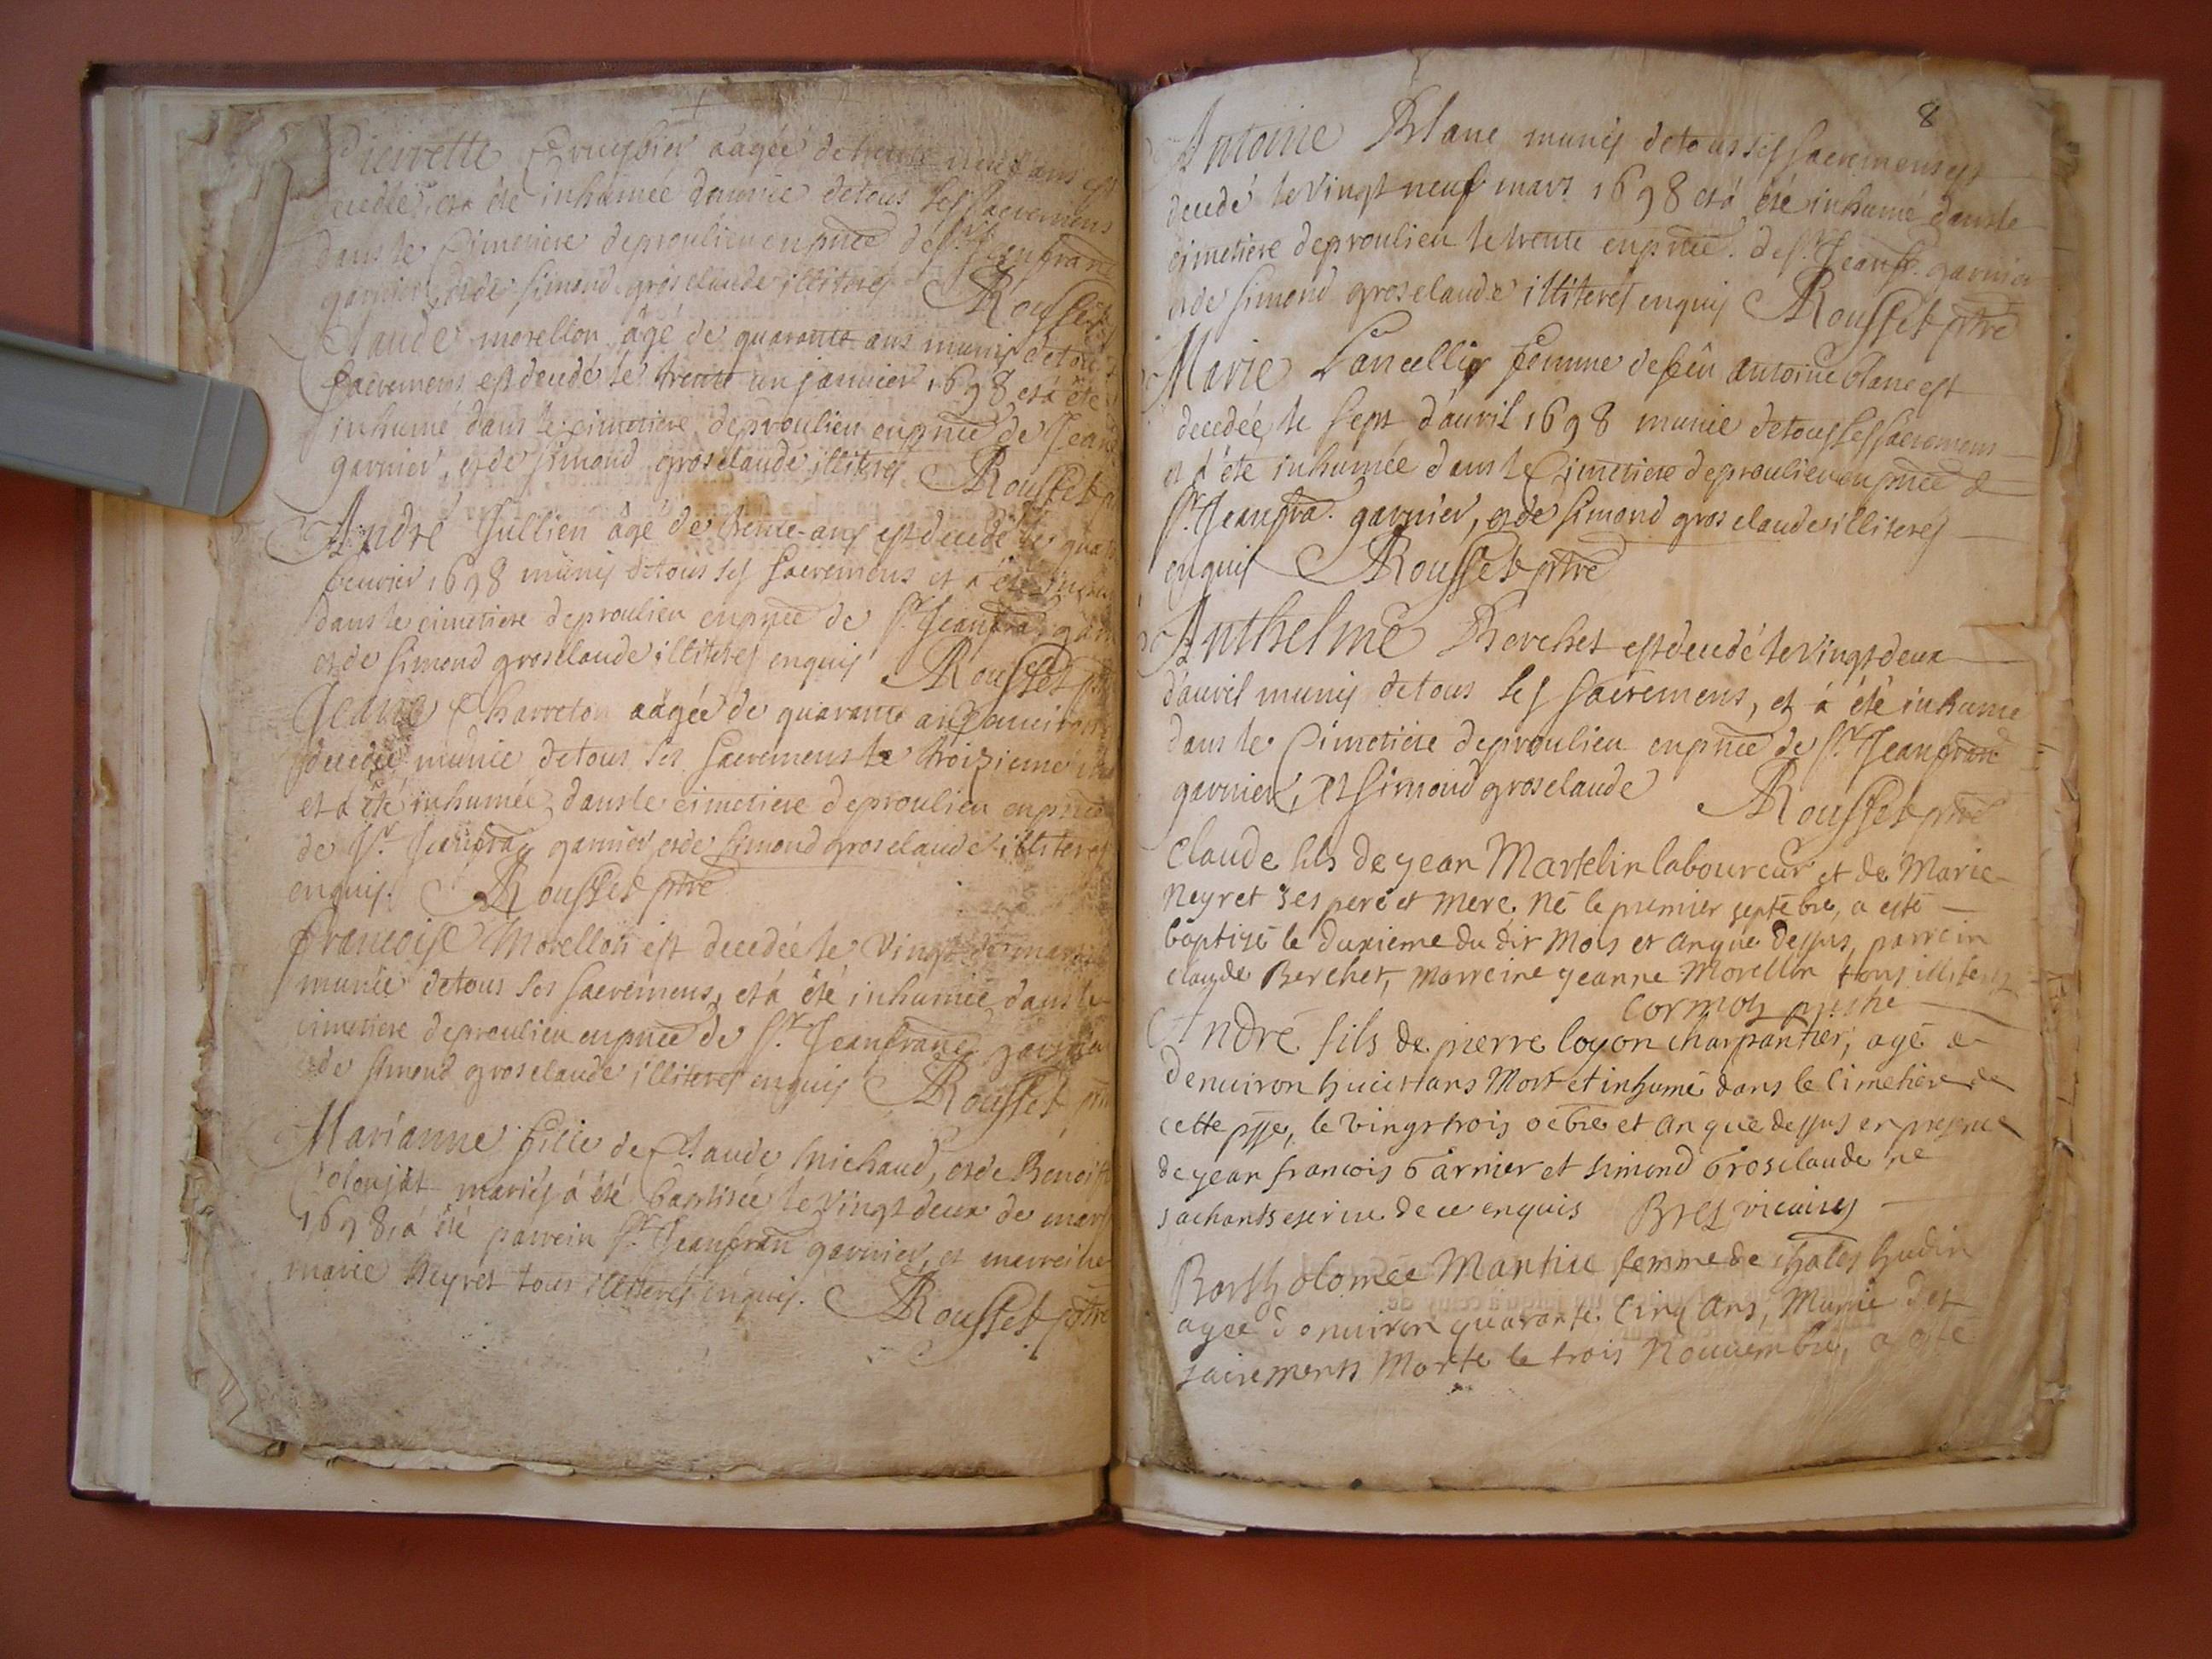 aagée de trente neuf ans est
decedée, et a été inhumée munie de tous ses sacremens
dans le Cimetiere de proulieu en pnce de Sr. Jean franc
garnier, et de simond grosclaude illiteres Rousset
Claude morellon âgé de quarante ans munis de tous
sacremens est decedé le trente un januier 1698 et a été
inhumé dans le cimetiere de proulieu en pnce de Jean
garnier, et de simond grosclaude illiteres Rousset p
André Jullien âgé de trente ans est decedé le
feurier 1698 munis de tous ses sacremens et a été
dans le cimetiere de proulieu en pnce de Sr. Jean fra. gar
et de simond grosclaude illiteres enquis Rousset p
Jeanne Charreton aagée de quarante ans enuiron
decedée munie de tous ses sacremens le troisieme
et a été inhumée dans le cimetiere de proulieu en pnce
de Sr. Jean fra. garnier et de simond grosclaude illiteres
enquis. Rousset ptre
francoise Morellon est decedée le Vingt de mars
munie de tous ses sacremens, et a été inhumée dans le
cimetiere de proulieu en pnce de Sr. Jean franc garnier
et de simond grosclaude illiteres enquis Rousset ptre
Marianne fille de Claude Michaud, et de Benoiste
Colonjat mariés a été baptisée le Vingt deux de mars
1698, a été parrein Sr. Jean fran garnier, et marreine
marie Neyret tous illiterés enquis. Rousset ptre
8
Antoine Blanc munis de tous ses sacremens est
decedé le Vingt neuf mars 1698 et a été inhumé dans le
cimetiere de proulieu le trente en pnce. de Sr. Jean fr. garnier
et de simond grosclaude illiteres enquis Rousset ptre
Marie Lancellin femme de feu antoine blanc est
decedée, le sept d'auril 1698 munie de tous ses sacremens
et a été inhumée dans le Cimetiere de proulieu en pnce de
Sr. Jean fra. garnier, et de simond grosclaude illiterés
enquis Rousset ptre
Anthelme Berchet est decedé le Vingt deux
d'auril munis de tous ses sacremens, et a été inhumé
dans le Cimetiere de proulieu en pnce de Sr. Jean franc
garnier, et simond grosclaude Rousset ptre
Claude fils de jean Martelin laboureur et de Marie
Neyret ses pere et mere, né le premier septebre, a esté
baptisé le duxieme du dit mois et an que dessus, parrein
claude Berchet, marreine jeanne Morellon tous illiteres
Cormoz
André fils de pierre loyon charpantier, agé
denuiron huict ans Mort et inhumé dans le Cimetiere de
cette psse, le vingt trois octbre et an que dessus en presence
de jean francois Garnier et simond Grosclaude ne
sachants escrire de ce enquis Bres vicaire
Bartholomee Mantiu femme de
agée d'enuiron quarante Cinq ans, Munie des
sacrements Morte le trois Nouuembre, a esté